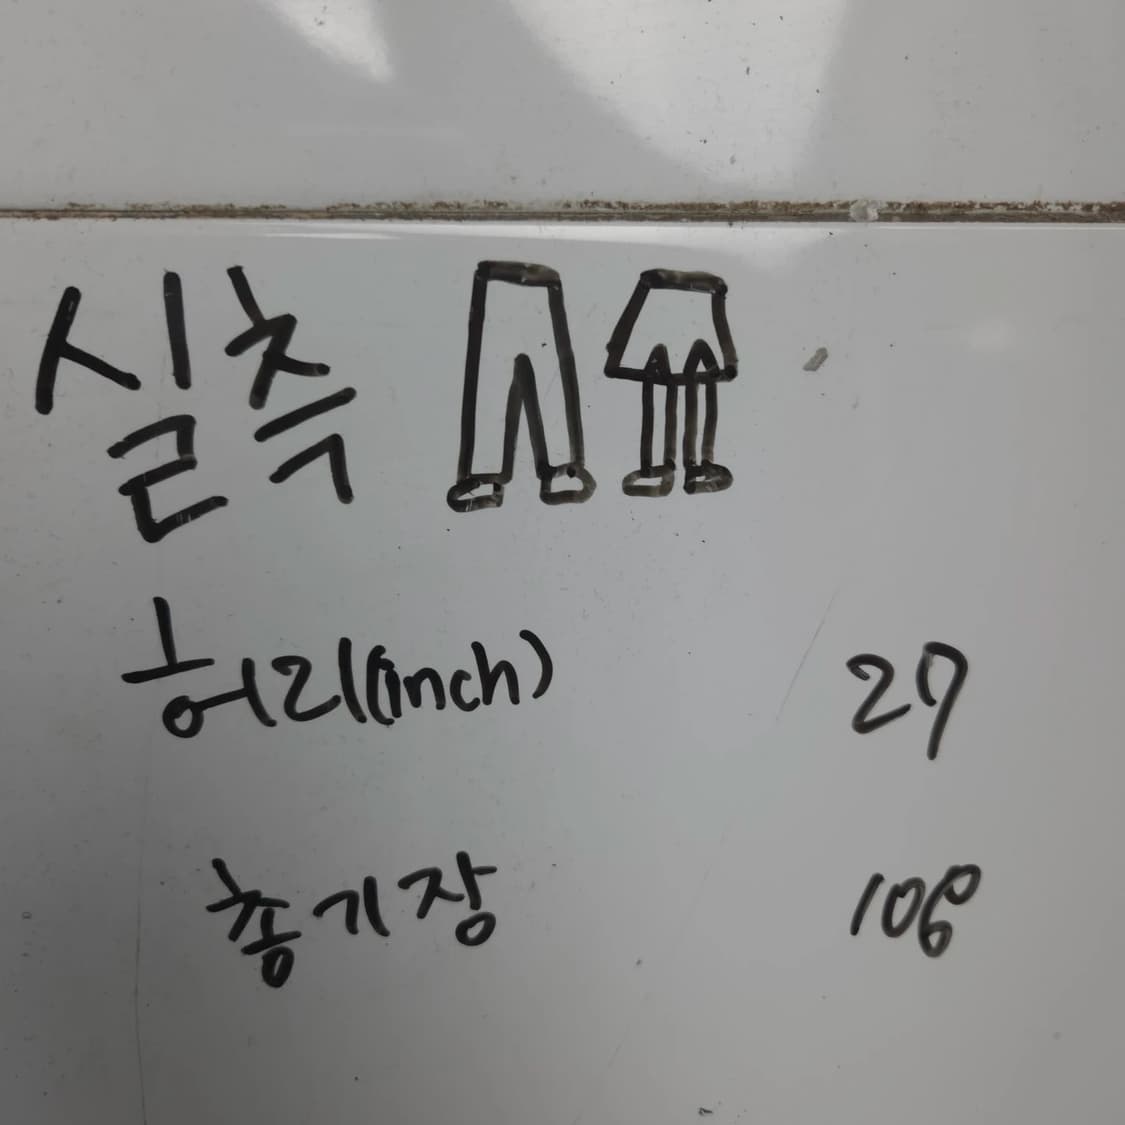 실측
허리(inch) 27
총기장 106